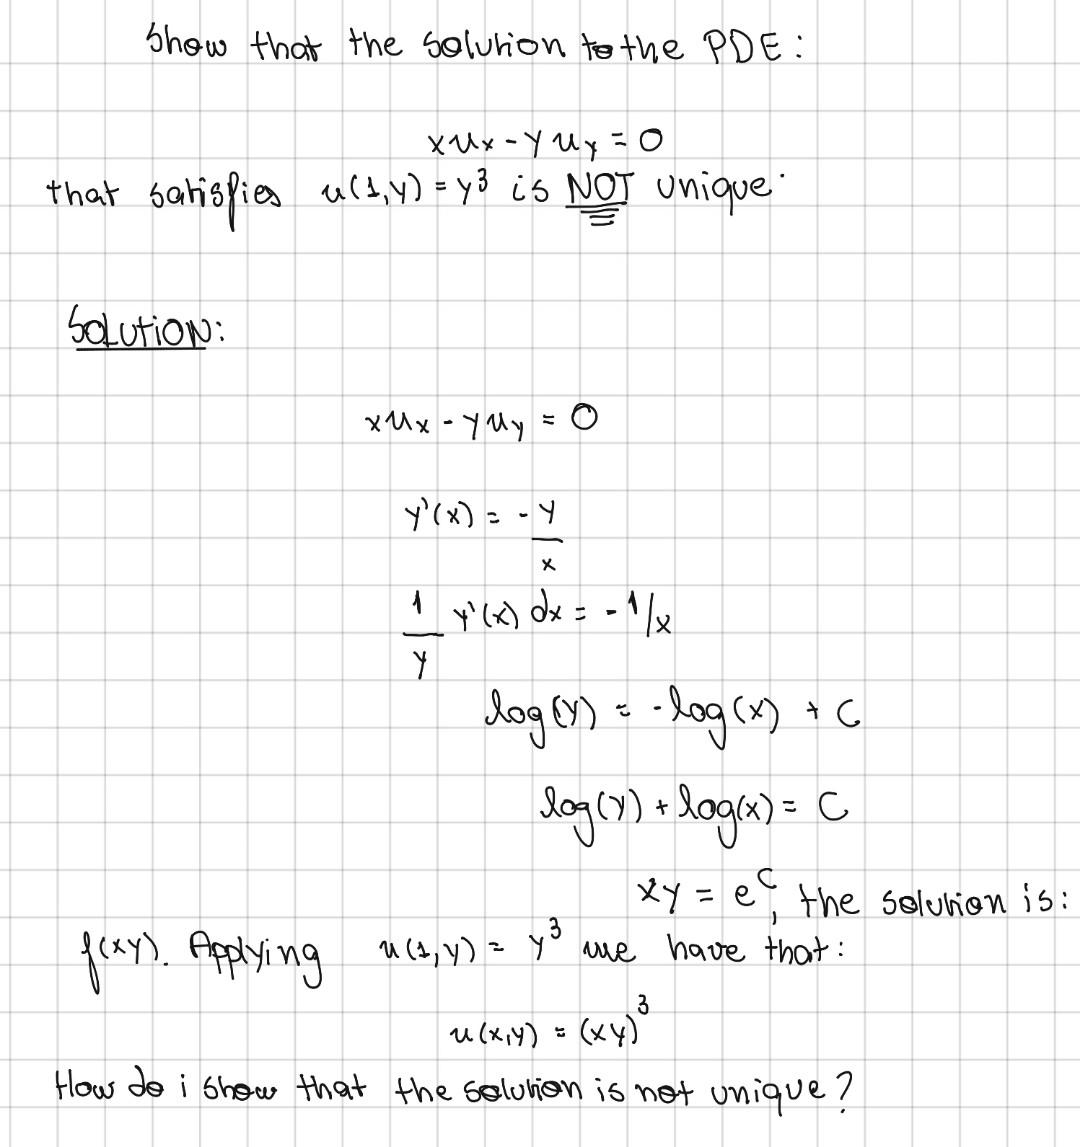 Show that the solution to the PDE:
xux - yuy = 0
that satisfies u(1,y) = y³ is NOT unique.
SOLUTION:
xux - yuy = 0
y'(x) = -y/x
1/y y'(x) dx = -1/x
log(y) = -log(x) + C
log(y) + log(x) = C
xy = e^C, the solution is:
f(xy). Applying u(1,y) = y³ we have that:
u(x,y) = (xy)³
How do i show that the solution is not unique?